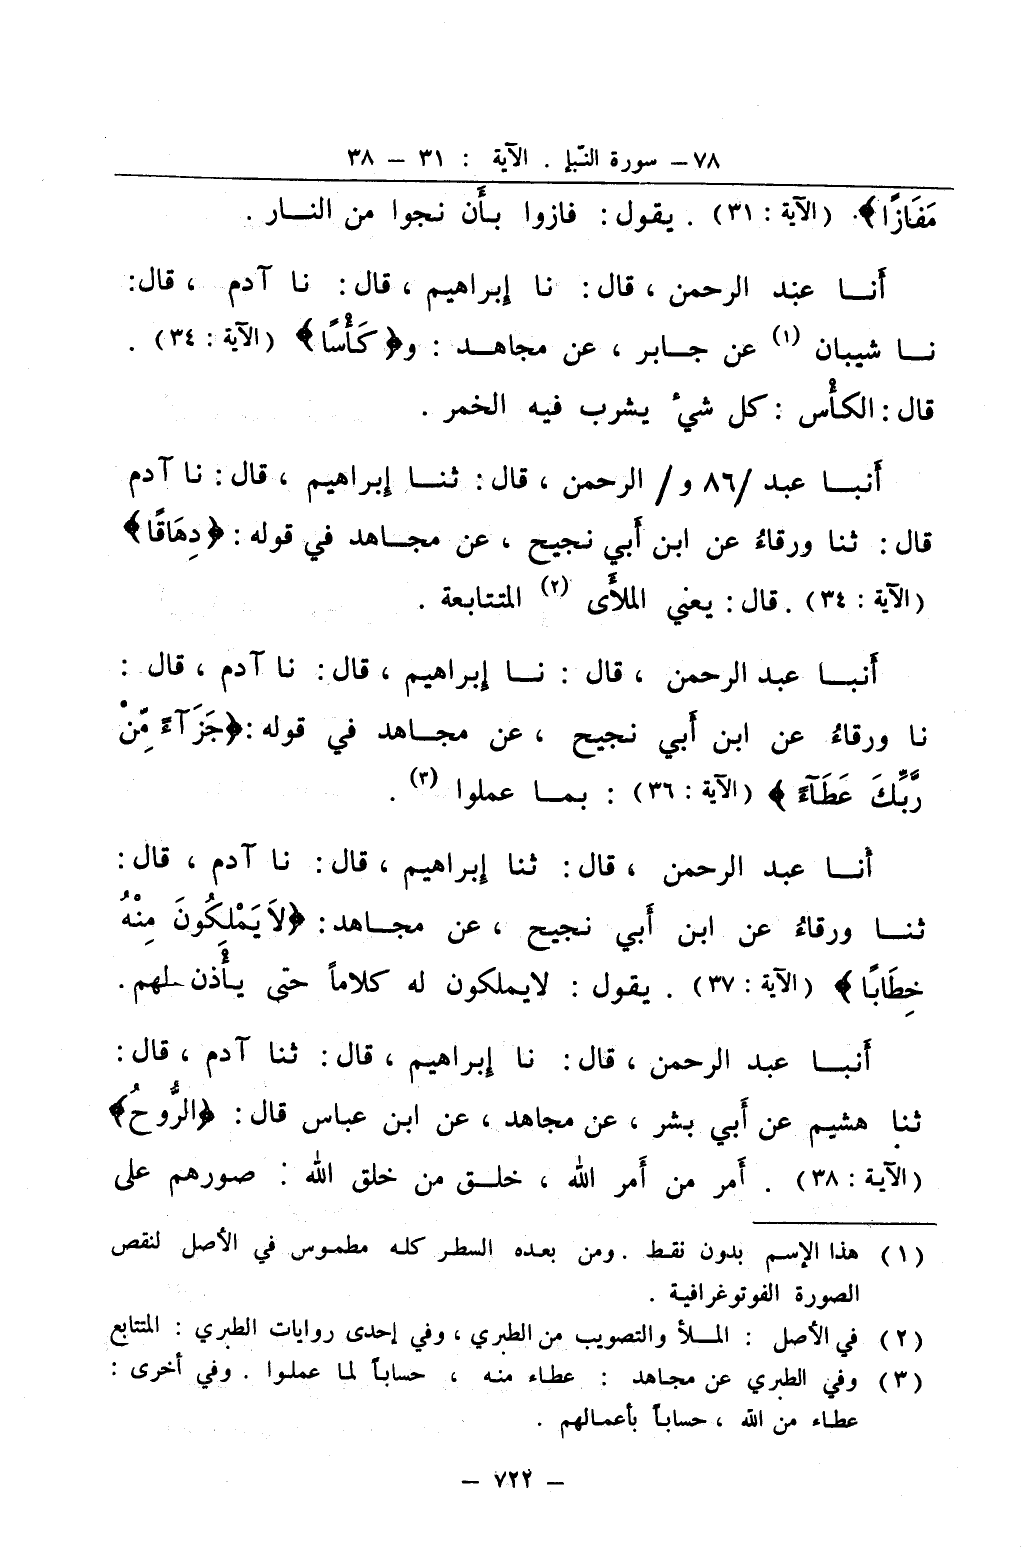 ٧٨ – سورة النّبإ . الآية : ٣١ – ٣٨
مَفَازًا﴾ . (الآية : ٣١) . يقول : فازوا بأن نجوا من النــار .
أنــا عبد الرحمن ، قال : نا إبراهيم ، قال : نا آدم ، قال :
نــا شيبان (١) عن جــابر ، عن مجاهــد : و﴿كَأْسًا﴾ (الآية : ٣٤) .
قال : الكأس : كل شيء يشرب فيه الخمر .
أنبــا عبد /٨٦ و/ الرحمن ، قال : ثنــا إبراهيم ، قال : نا آدم
قال : ثنا ورقاءُ عن ابن أبي نجيح ، عن مجــاهد في قوله : ﴿دِهَاقًا﴾
(الآية : ٣٤) . قال : يعني الملأى (٢) المتتابعة .
أنبــا عبد الرحمن ، قال : نــا إبراهيم ، قال : نا آدم ، قال :
نا ورقاءُ عن ابن أبي نجيح ، عن مجــاهد في قوله : ﴿جَزَآءً مِّنْ
رَّبِّكَ عَطَآءً﴾ (الآية : ٣٦) : بمــا عملوا (٣) .
أنــا عبد الرحمن ، قال : ثنا إبراهيم ، قال : نا آدم ، قال :
ثنــا ورقاءُ عن ابن أبي نجيح ، عن مجــاهد : ﴿لاَ يَمْلِكُونَ مِنْهُ
خِطَابًا﴾ (الآية : ٣٧) . يقول : لايملكون له كلاماً حتى يأذن لهم .
أنبــا عبد الرحمن ، قال : نا إبراهيم ، قال : ثنا آدم ، قال :
ثنا هشيم عن أبي بشر ، عن مجاهد ، عن ابن عباس قال : ﴿الرُّوحُ﴾
(الآية : ٣٨) . أمر من أمر الله ، خلــق من خلق الله : صورهم على
(١) هذا الإسم بدون نقط . ومن بعده السطر كله مطموس في الأصل لنقص
الصورة الفوتوغرافية .
(٢) في الأصل : المــلأ والتصويب من الطبري ، وفي إحدى روايات الطبري : المتتابع
(٣) وفي الطبري عن مجاهد : عطاء منه ، حساباً لما عملوا . وفي أخرى :
عطاء من الله ، حساباً بأعمــالهم .
– ٧٢٢ –